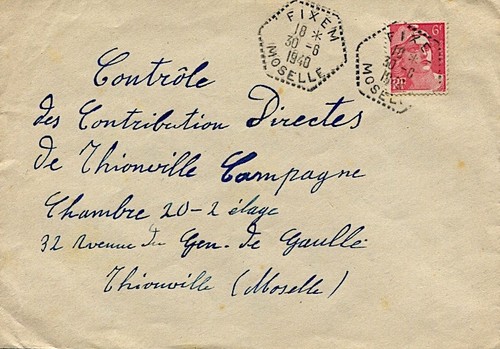 FIXEM
18 *
30 -6
1940
MOSELLE
FIXE
18 *
MOSELL
6F
Contrôle
des Contribution Directes
de Thionville Campagne
Chambre 20-2 étage
32 Avenue du Gen. de Gaulle
Thionville (Moselle)